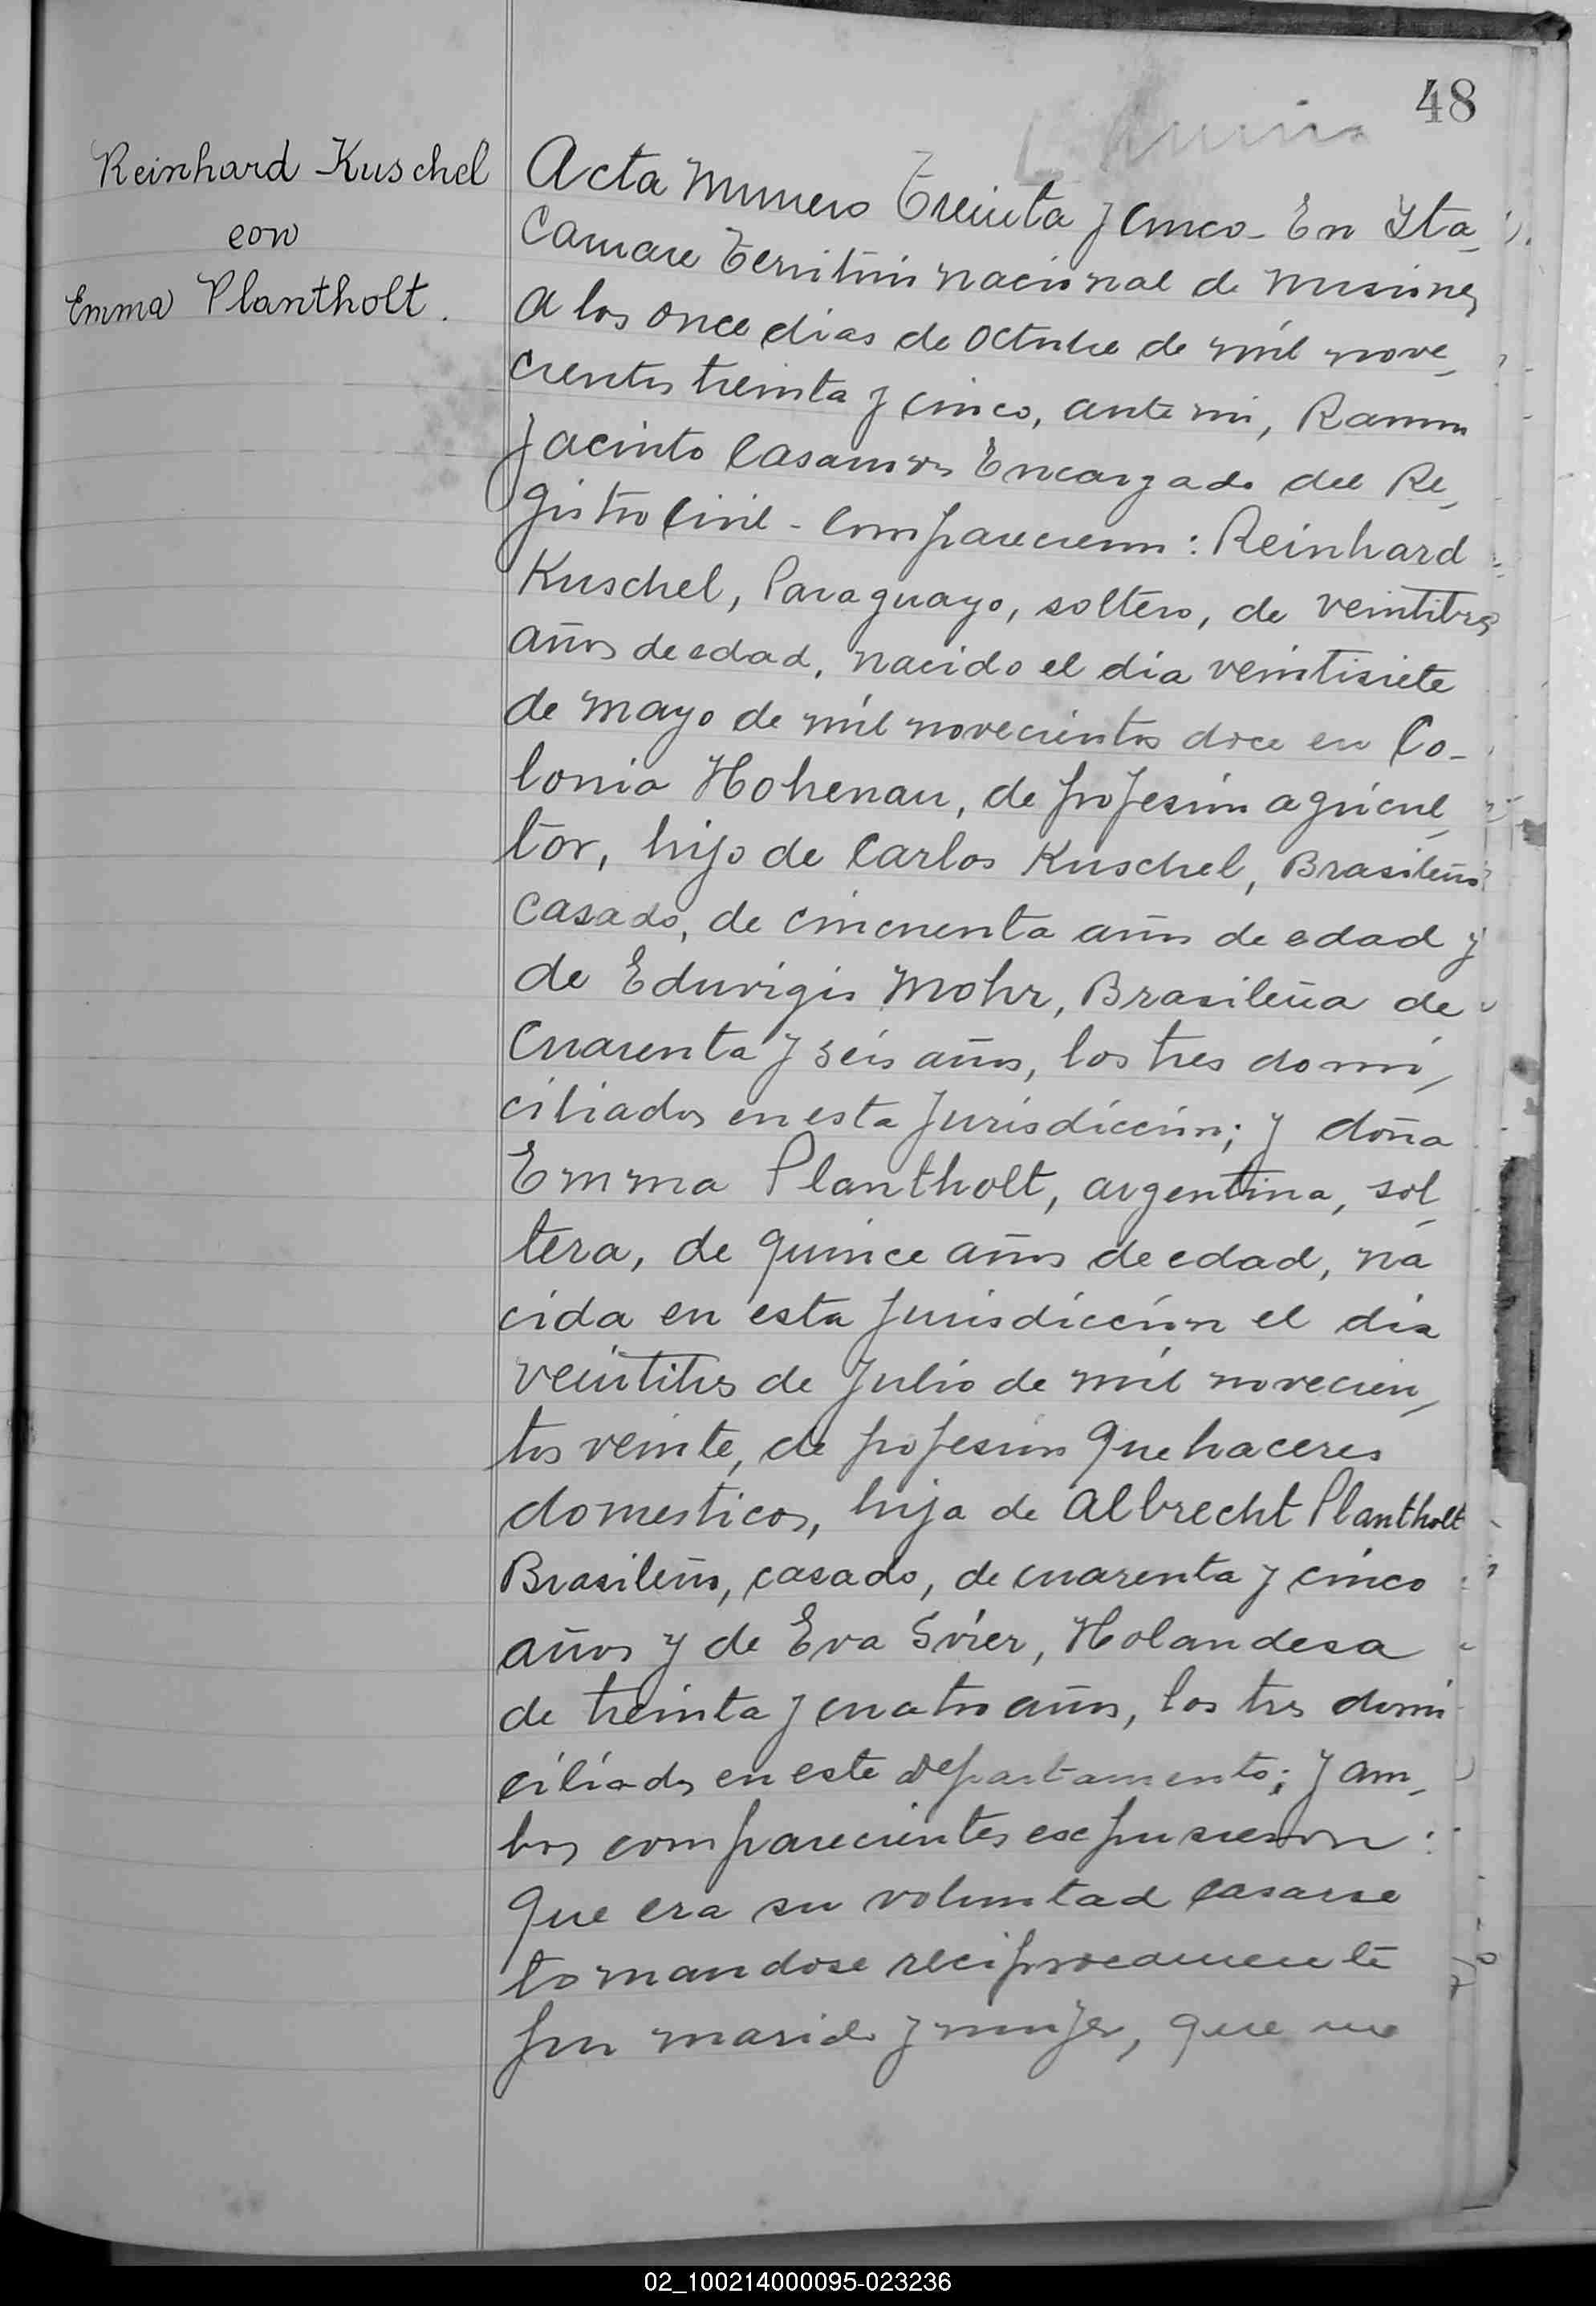 48
Reinhard Kuschel
con
Emma Plantholt.
Acta numero Treinta y cinco - En Ita
Caruare Territorio nacional de Misiones
a los once dias de octubre de mil nove
cientos treinta y cinco, ante mi, Ramon
Jacinto Casamor Encargado del Re
gistro Civil - Comparecieron: Reinhard
Kuschel, Paraguayo, soltero, de veintitres
años de edad, nacido el dia veintisiete
de mayo de mil novecientos doce en Co-
lonia Hohenau, de profesion agricul
tor, hijo de Carlos Kuschel, Brasileño
casado, de cincuenta años de edad y
de Eduvigis Mohr, Brasileña de
cuarenta y seis años, los tres domi
ciliados en esta Jurisdiccion; y doña
Emma Plantholt, argentina, sol
tera, de quince años de edad, na
cida en esta Jurisdiccion el dia
veintitres de Julio de mil novecien
tos veinte, de profesion Que haceres
domesticos, hija de Albrecht Plantholt
Brasileño, casado, de cuarenta y cinco
años y de Eva Svier, Holandesa
de treinta y cuatro años, los tres domi
ciliados en este departamento; y am
bos comparecientes expusieron:
Que era su voluntad casarse
tomandose reciprocamente
por marido y mujer, que no
02_100214000095-023236